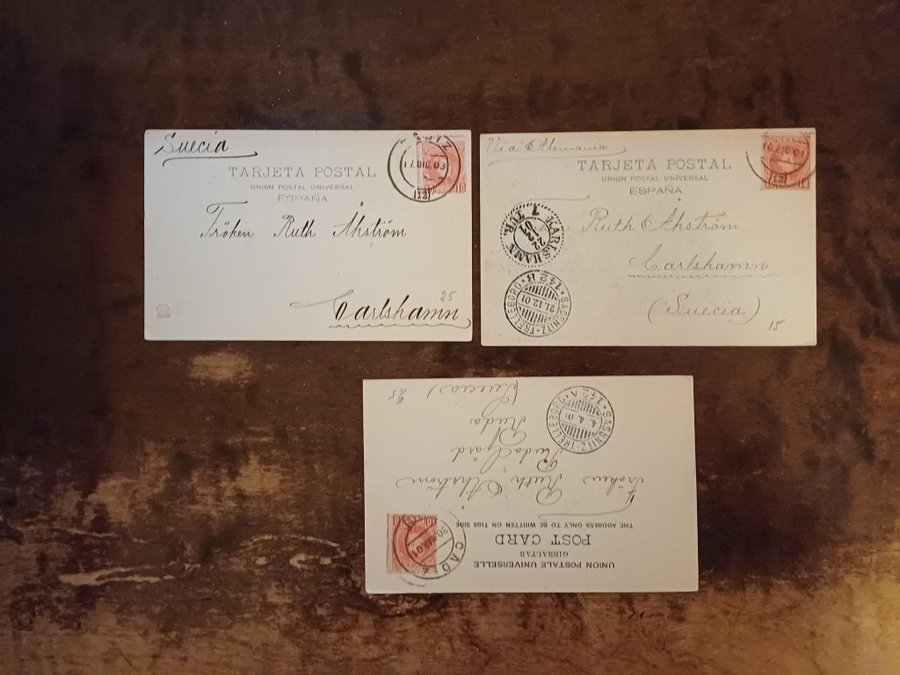 Suecia
TARJETA POSTAL
UNION POSTAL UNIVERSAL
ESPAÑA
17 DIC 03
(12)
10
Fröken Ruth Åhström
Carlshamn
25
Via Alemania
TARJETA POSTAL
UNION POSTAL UNIVERSAL
ESPAÑA
16 DIC 01
(12)
Ruth Åhström
Carlshamn
(Suecia)
15
KARLSHAMN
22
12
01
7. TUR.
SASSNITZ-TRELLEBORG
21.12.01
* 142 B *
UNION POSTALE UNIVERSELLE
GIBRALTAR
POST CARD
THE ADDRESS ONLY TO BE WRITTEN ON THIS SIDE
Fröken Ruth Åhström
(Suecia)
25
CADIZ
30 MAR 01
10
SASSNITZ-TRELLEBORG
4.4.01
* 142 A *